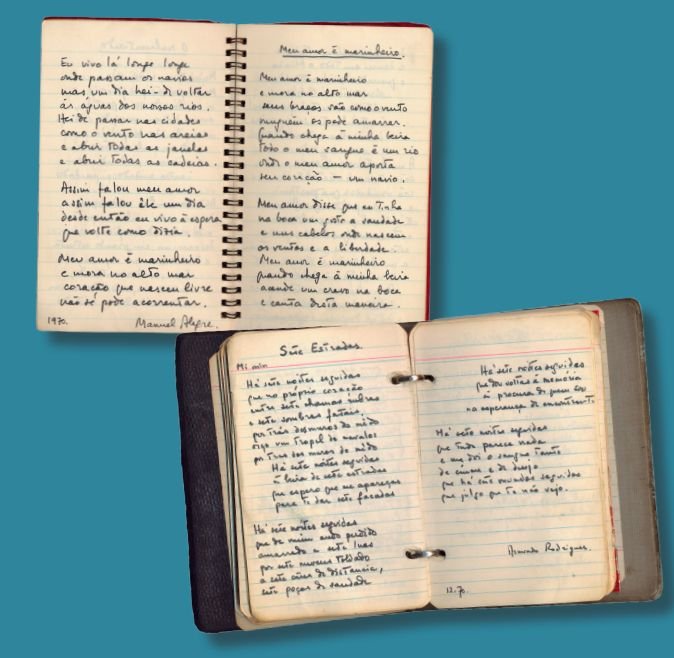 Eu vivo lá longe longe
onde passam os navios
mas um dia hei-de voltar
às águas dos nossos rios.
Hei de passar nas cidades
como o vento nas areias
e abrir todas as janelas
e abrir todas as cadeias.
Assim falou meu amor
assim falou ele um dia
desde então eu vivo à espera
que volte como dizia.
Meu amor é marinheiro
e mora no alto mar
coração que nasceu livre
não se pode acorrentar.
1970.
Manuel Alegre.
Meu amor é marinheiro.
Meu amor é marinheiro
e mora no alto mar
seus braços são como o vento
ninguém os pode amarrar.
Quando chega à minha beira
todo o meu sangue é um rio
onde o meu amor aporta
seu coração — um navio.
Meu amor disse que eu tinha
na boca um gosto a saudade
e uns cabelos onde nascem
os ventos e a liberdade.
Meu amor é marinheiro
quando chega à minha beira
acende um cravo na boca
e canta desta maneira.
Sete Estradas.
Mi min
Há sete noites seguidas
que no próprio coração
entre sete chamas rubras
e sete sombras fatais,
por trás dos muros do medo
oiço um tropel de cavalos
por trás dos muros do medo
Há sete noites seguidas
à beira de sete estradas
que espero que me apareças
para te dar sete facadas
Há sete noites seguidas
que de mim ando perdido
amarrado a sete luas
por sete mouros toldado
a sete cães de distância,
sete poços de saudade
Há sete noites seguidas
que dou voltas à memória
à procura de quem sou
na esperança de encontrar-te.
Há sete noites seguidas
que tudo parece nada
e me doi o sangue tanto
de ciume e de desejo
que há sete mundos seguidos
que julgo que te não vejo.
Rodrigues.
12.70.